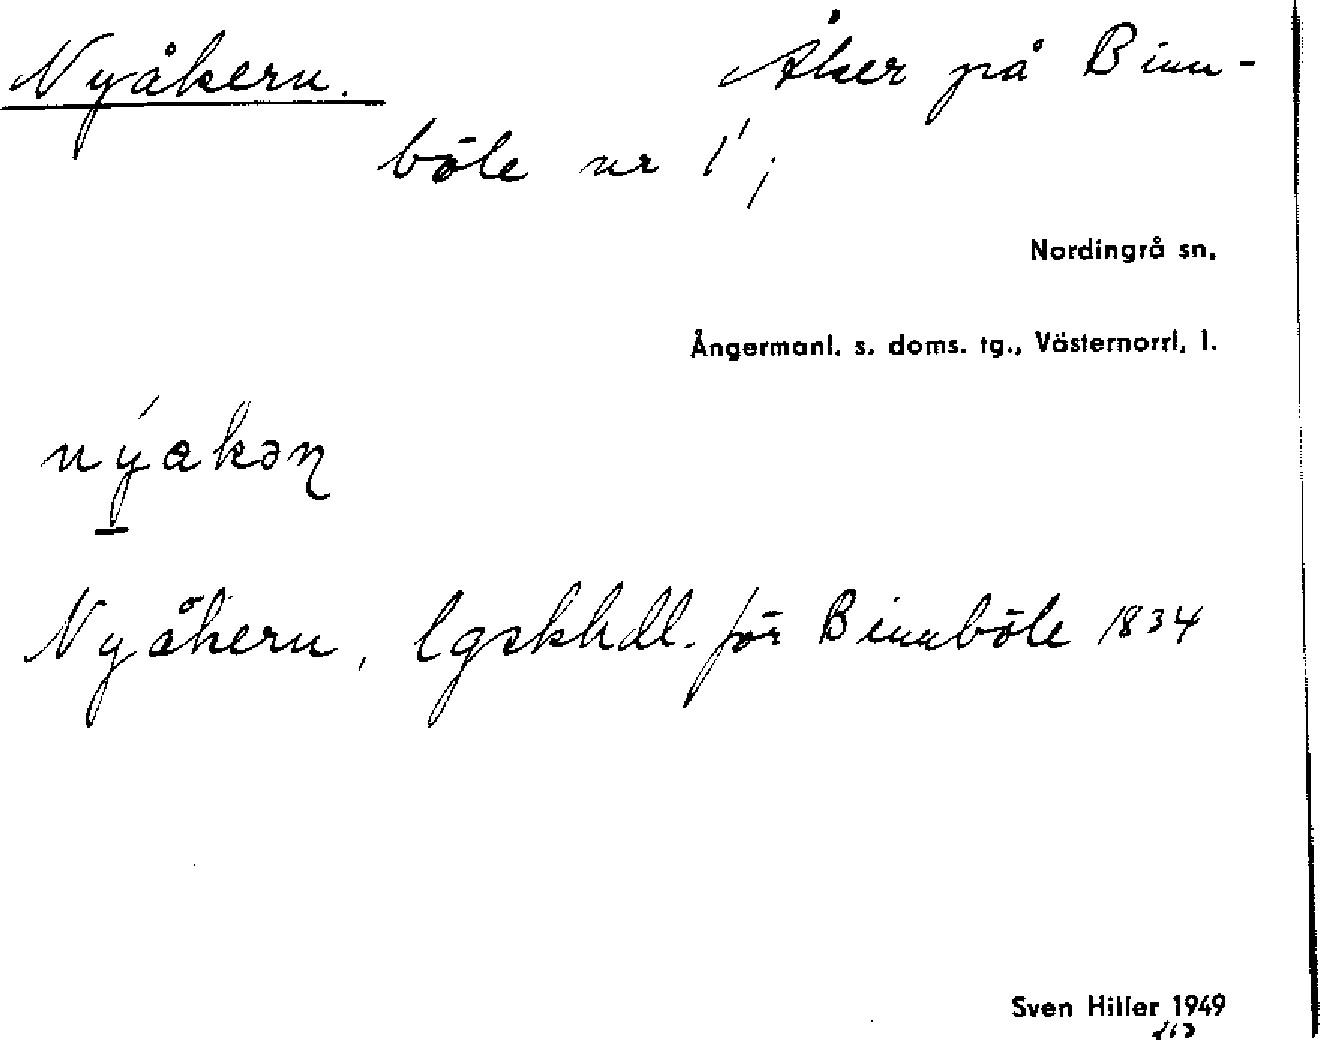 Nyåkern. Åker på Binn-
böle nr 1¹;
Nordingrå sn.
Ångermanl. s. doms. tg., Västernorrl. l.
nýakəɳ
Nyåkern, lgskhdl. för Binnböle 1834
Sven Hiller 1949